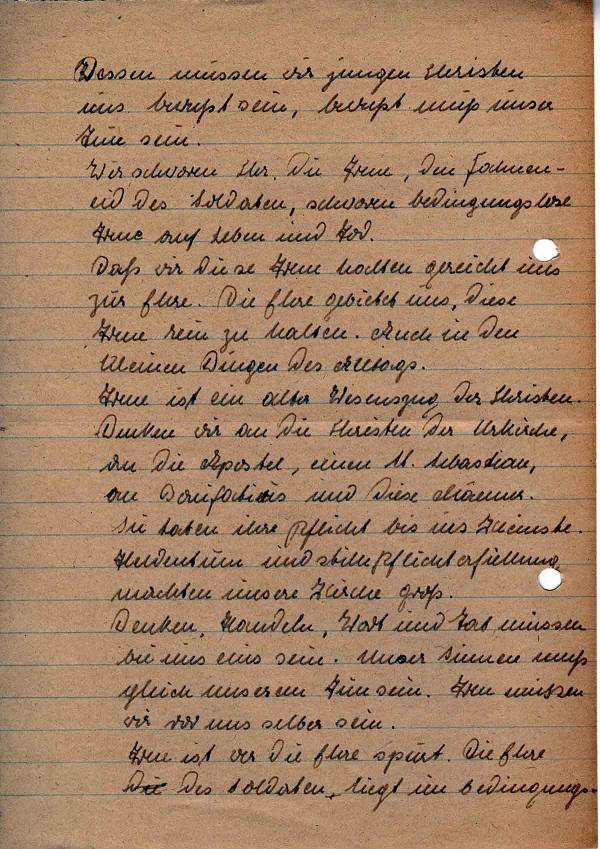 Dessen müssen wir jungen Christen
uns bewußt sein, bewußt muß unser
Tun sein.
Wir schwören hier. Die Treue, den Fahnen-
eid des Soldaten, schwören bedingungslose
Treue auf Leben und Tod.
Daß wir diese Treue halten gereicht uns
zur Ehre. Die Ehre gebietet uns, diese
Treue rein zu halten. Auch in den
kleinen Dingen des Alltags.
Treue ist ein alter Wesenszug der Christen.
Denken wir an die Christen der Urkirche,
an die Apostel, einen hl. Sebastian,
an Bonifatius und diese Männer.
Sie taten ihre Pflicht bis ins Kleinste.
Heldentum und stille Pflichterfüllung
machten unsere Kirche groß.
Denken, Handeln, Wort und Tat müssen
bei uns eins sein. Unser Sinnen muß
gleich unserem Tun sein. Treu müssen
wir vor uns selber sein.
Treue ist wer die Ehre spürt. Die Ehre
des Soldaten, liegt im bedingungs-